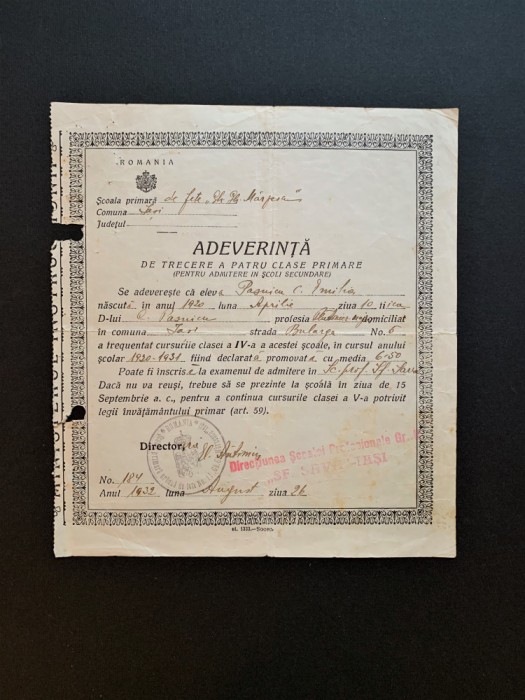 ROMANIA
Școala primară de fete „Gh. Gh. Mârzescu"
Comuna Iași
Județul
ADEVERINȚĂ
DE TRECERE A PATRU CLASE PRIMARE
(PENTRU ADMITERE IN ȘCOLI SECUNDARE)
Se adeverește că eleva Pașnicu C. Emilia
născută în anul 1920 luna Aprilie ziua 10 fiica
D-lui C. Pașnicu profesia domiciliat
în comuna Iași strada Bularga No. 6
a frequentat cursurile clasei a IV-a a acestei școale, în cursul anului
școlar 1930-1931 fiind declarată promovată cu media 6.50
Poate fi înscrisă la examenul de admitere în Șc. prof. Sf.
Dacă nu va reuși, trebue să se prezinte la școală în ziua de 15
Septembrie a. c., pentru a continua cursurile clasei a V-a potrivit
legii învățământului primar (art. 59).
Director,
Direcțiunea Școalei Profesionale
IAȘI
No. 184
Anul 1932 luna August ziua 26